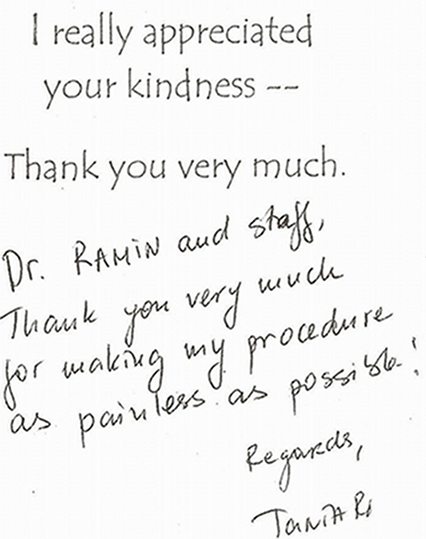 I really appreciated
your kindness --
Thank you very much.
Dr. RAMIN and staff,
Thank you very much
for making my procedure
as painless as possible!
Regards,
TANIA R.